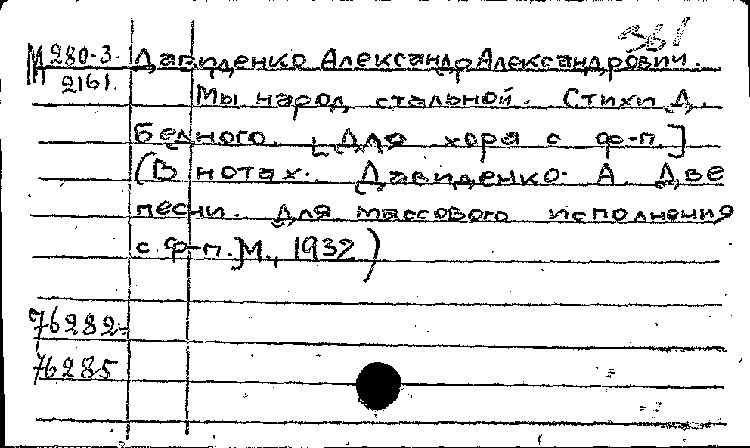 М 280-3 Давиденко Александр Александрович.
2161. Мы народ стальной. Стихи Д.
Бедного. [Для хора с ф-п.]
(В нотах: Давиденко А. Две
песни. Для массового исполнения
с ф-п.] М., 1932)
76282-
76285